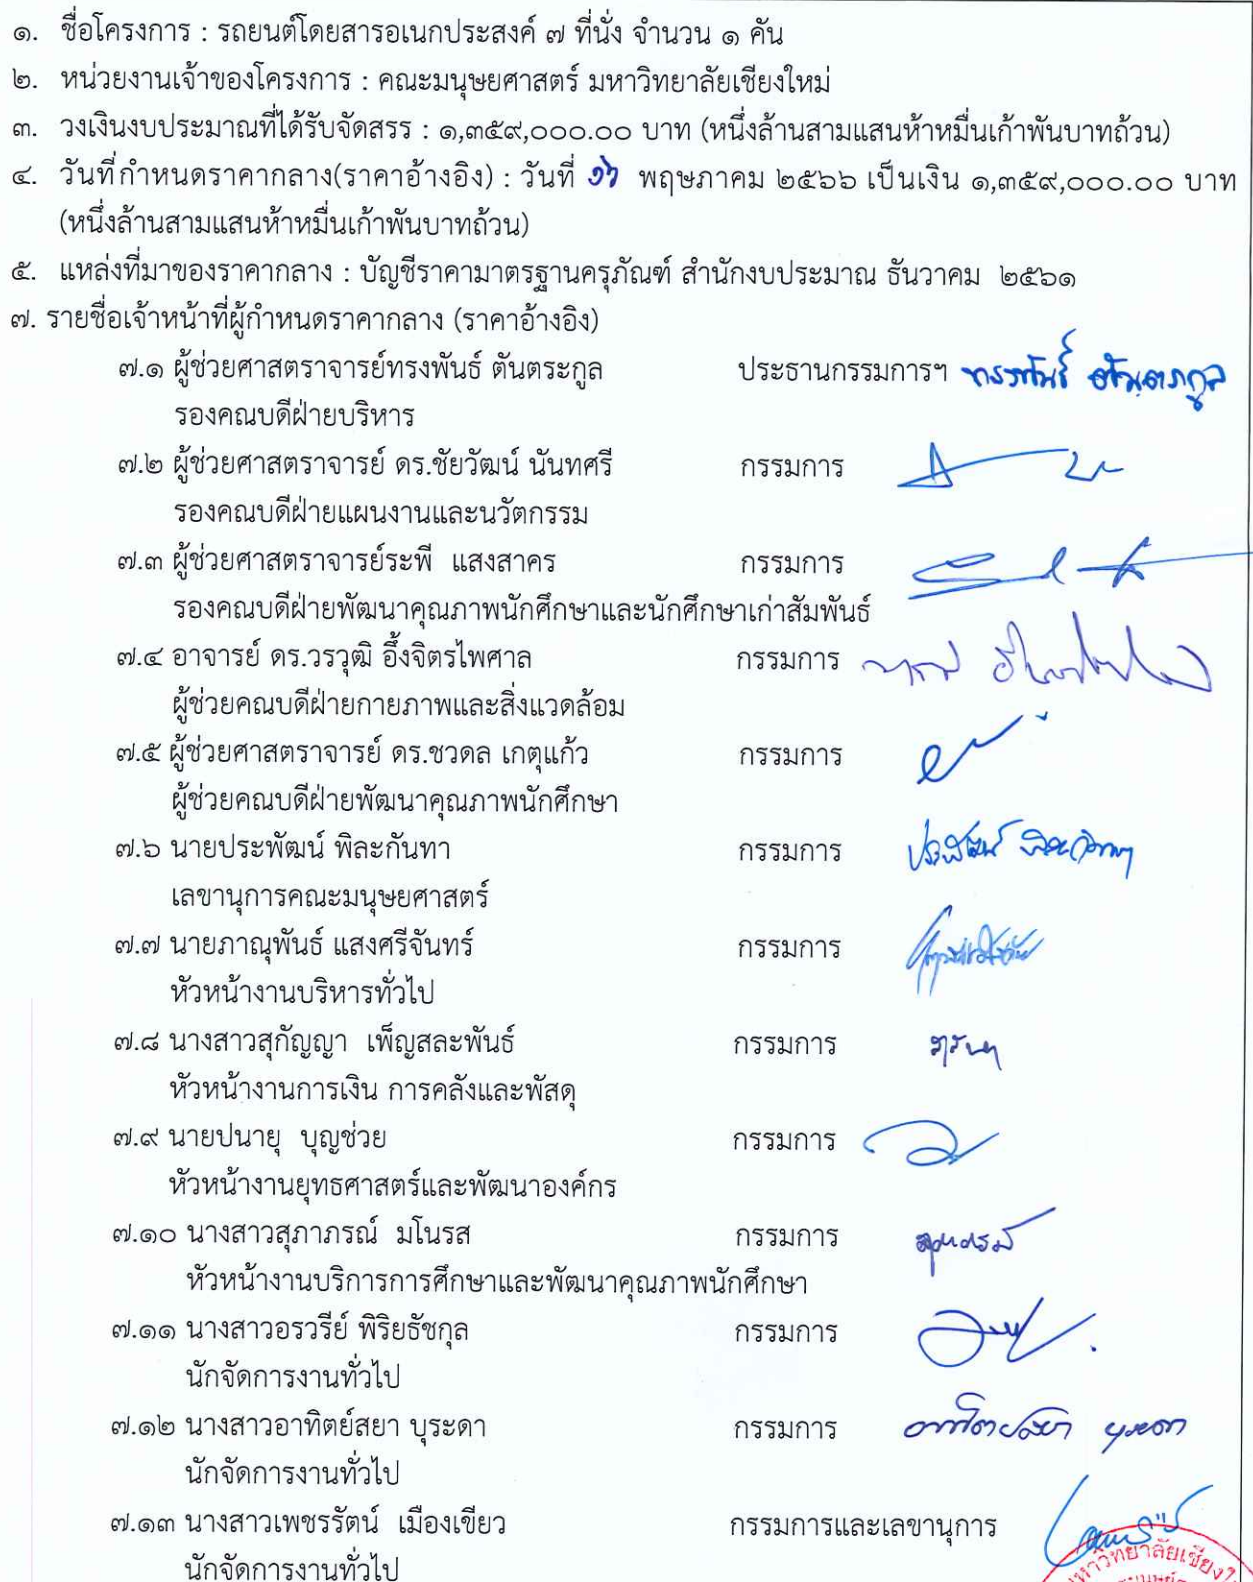 ๑. ชื่อโครงการ : รถยนต์โดยสารอเนกประสงค์ ๗ ที่นั่ง จำนวน ๑ คัน
๒. หน่วยงานเจ้าของโครงการ : คณะมนุษยศาสตร์ มหาวิทยาลัยเชียงใหม่
๓. วงเงินงบประมาณที่ได้รับจัดสรร : ๑,๓๕๙,๐๐๐.๐๐ บาท (หนึ่งล้านสามแสนห้าหมื่นเก้าพันบาทถ้วน)
๔. วันที่กำหนดราคากลาง(ราคาอ้างอิง) : วันที่ ๑๖ พฤษภาคม ๒๕๖๖ เป็นเงิน ๑,๓๕๙,๐๐๐.๐๐ บาท
(หนึ่งล้านสามแสนห้าหมื่นเก้าพันบาทถ้วน)
๕. แหล่งที่มาของราคากลาง : บัญชีราคามาตรฐานครุภัณฑ์ สำนักงบประมาณ ธันวาคม ๒๕๖๑
๗. รายชื่อเจ้าหน้าที่ผู้กำหนดราคากลาง (ราคาอ้างอิง)
๗.๑ ผู้ช่วยศาสตราจารย์ทรงพันธ์ ตันตระกูล ประธานกรรมการฯ ทรงพันธ์ ตันตระกูล
รองคณบดีฝ่ายบริหาร
๗.๒ ผู้ช่วยศาสตราจารย์ ดร.ชัยวัฒน์ นันทศรี กรรมการ
รองคณบดีฝ่ายแผนงานและนวัตกรรม
๗.๓ ผู้ช่วยศาสตราจารย์ระพี แสงสาคร กรรมการ
รองคณบดีฝ่ายพัฒนาคุณภาพนักศึกษาและนักศึกษาเก่าสัมพันธ์
๗.๔ อาจารย์ ดร.วรวุฒิ อึ้งจิตรไพศาล กรรมการ
ผู้ช่วยคณบดีฝ่ายกายภาพและสิ่งแวดล้อม
๗.๕ ผู้ช่วยศาสตราจารย์ ดร.ชวดล เกตุแก้ว กรรมการ
ผู้ช่วยคณบดีฝ่ายพัฒนาคุณภาพนักศึกษา
๗.๖ นายประพัฒน์ พิละกันทา กรรมการ ประพัฒน์ พิละกันทา
เลขานุการคณะมนุษยศาสตร์
๗.๗ นายภาณุพันธ์ แสงศรีจันทร์ กรรมการ
หัวหน้างานบริหารทั่วไป
๗.๘ นางสาวสุกัญญา เพ็ญสละพันธ์ กรรมการ
หัวหน้างานการเงิน การคลังและพัสดุ
๗.๙ นายปนายุ บุญช่วย กรรมการ
หัวหน้างานยุทธศาสตร์และพัฒนาองค์กร
๗.๑๐ นางสาวสุภาภรณ์ มโนรส กรรมการ สุภาภรณ์
หัวหน้างานบริการการศึกษาและพัฒนาคุณภาพนักศึกษา
๗.๑๑ นางสาวอรวรีย์ พิริยธัชกุล กรรมการ
นักจัดการงานทั่วไป
๗.๑๒ นางสาวอาทิตย์สยา บุระดา กรรมการ อาทิตย์สยา บุระดา
นักจัดการงานทั่วไป
๗.๑๓ นางสาวเพชรรัตน์ เมืองเขียว กรรมการและเลขานุการ
นักจัดการงานทั่วไป